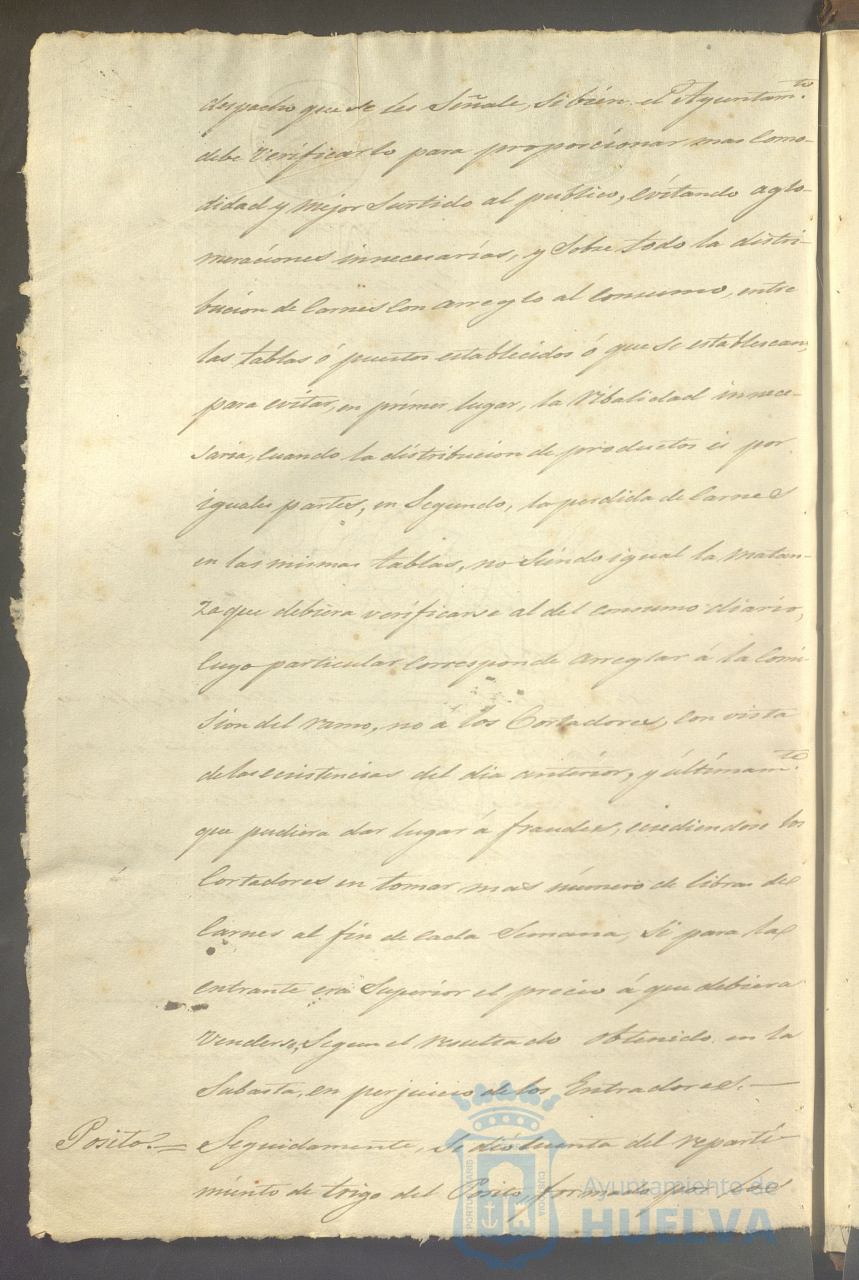 despacho que se les Señale, si bien el Ayuntam.to
debe verificarlo para proporcionar mas Como-
didad y mejor Surtido al publico, evitando aglo-
meraciones innecesarias, y Sobre todo la distri-
bucion de Carnes con arreglo al consumo, entre
las tablas ó puestos establecidos ó que se establescan,
para evitar, en primer lugar, la ribalidad innece-
saria, cuando la distribucion de productos es por
iguales partes; en Segundo, la perdida de Carnes
en las mismas tablas, no Siendo igual la matan-
za que debiera verificarse al del consumo diario,
cuyo particular corresponde arreglar á la Comi
sion del ramo, no á los Cortadores, con vista
de las ecsistencias del dia anterior, y últimam.te
que pudiera dar lugar á fraudes, ecsediendose los
Cortadores en tomar mas número de libras de
Carnes al fin de cada Semana, Si para la
entrante era Superior el precio á que debiera
venderse, Segun el resultado obtenido en la
Subasta, en perjuicio de los Entradores.—
Posito= Seguidamente, Se dió cuenta del reparti-
miento de trigo del Posito, formado por los
PORTUS MARIS
CUSTODIA
Ayuntamiento de
HUELVA